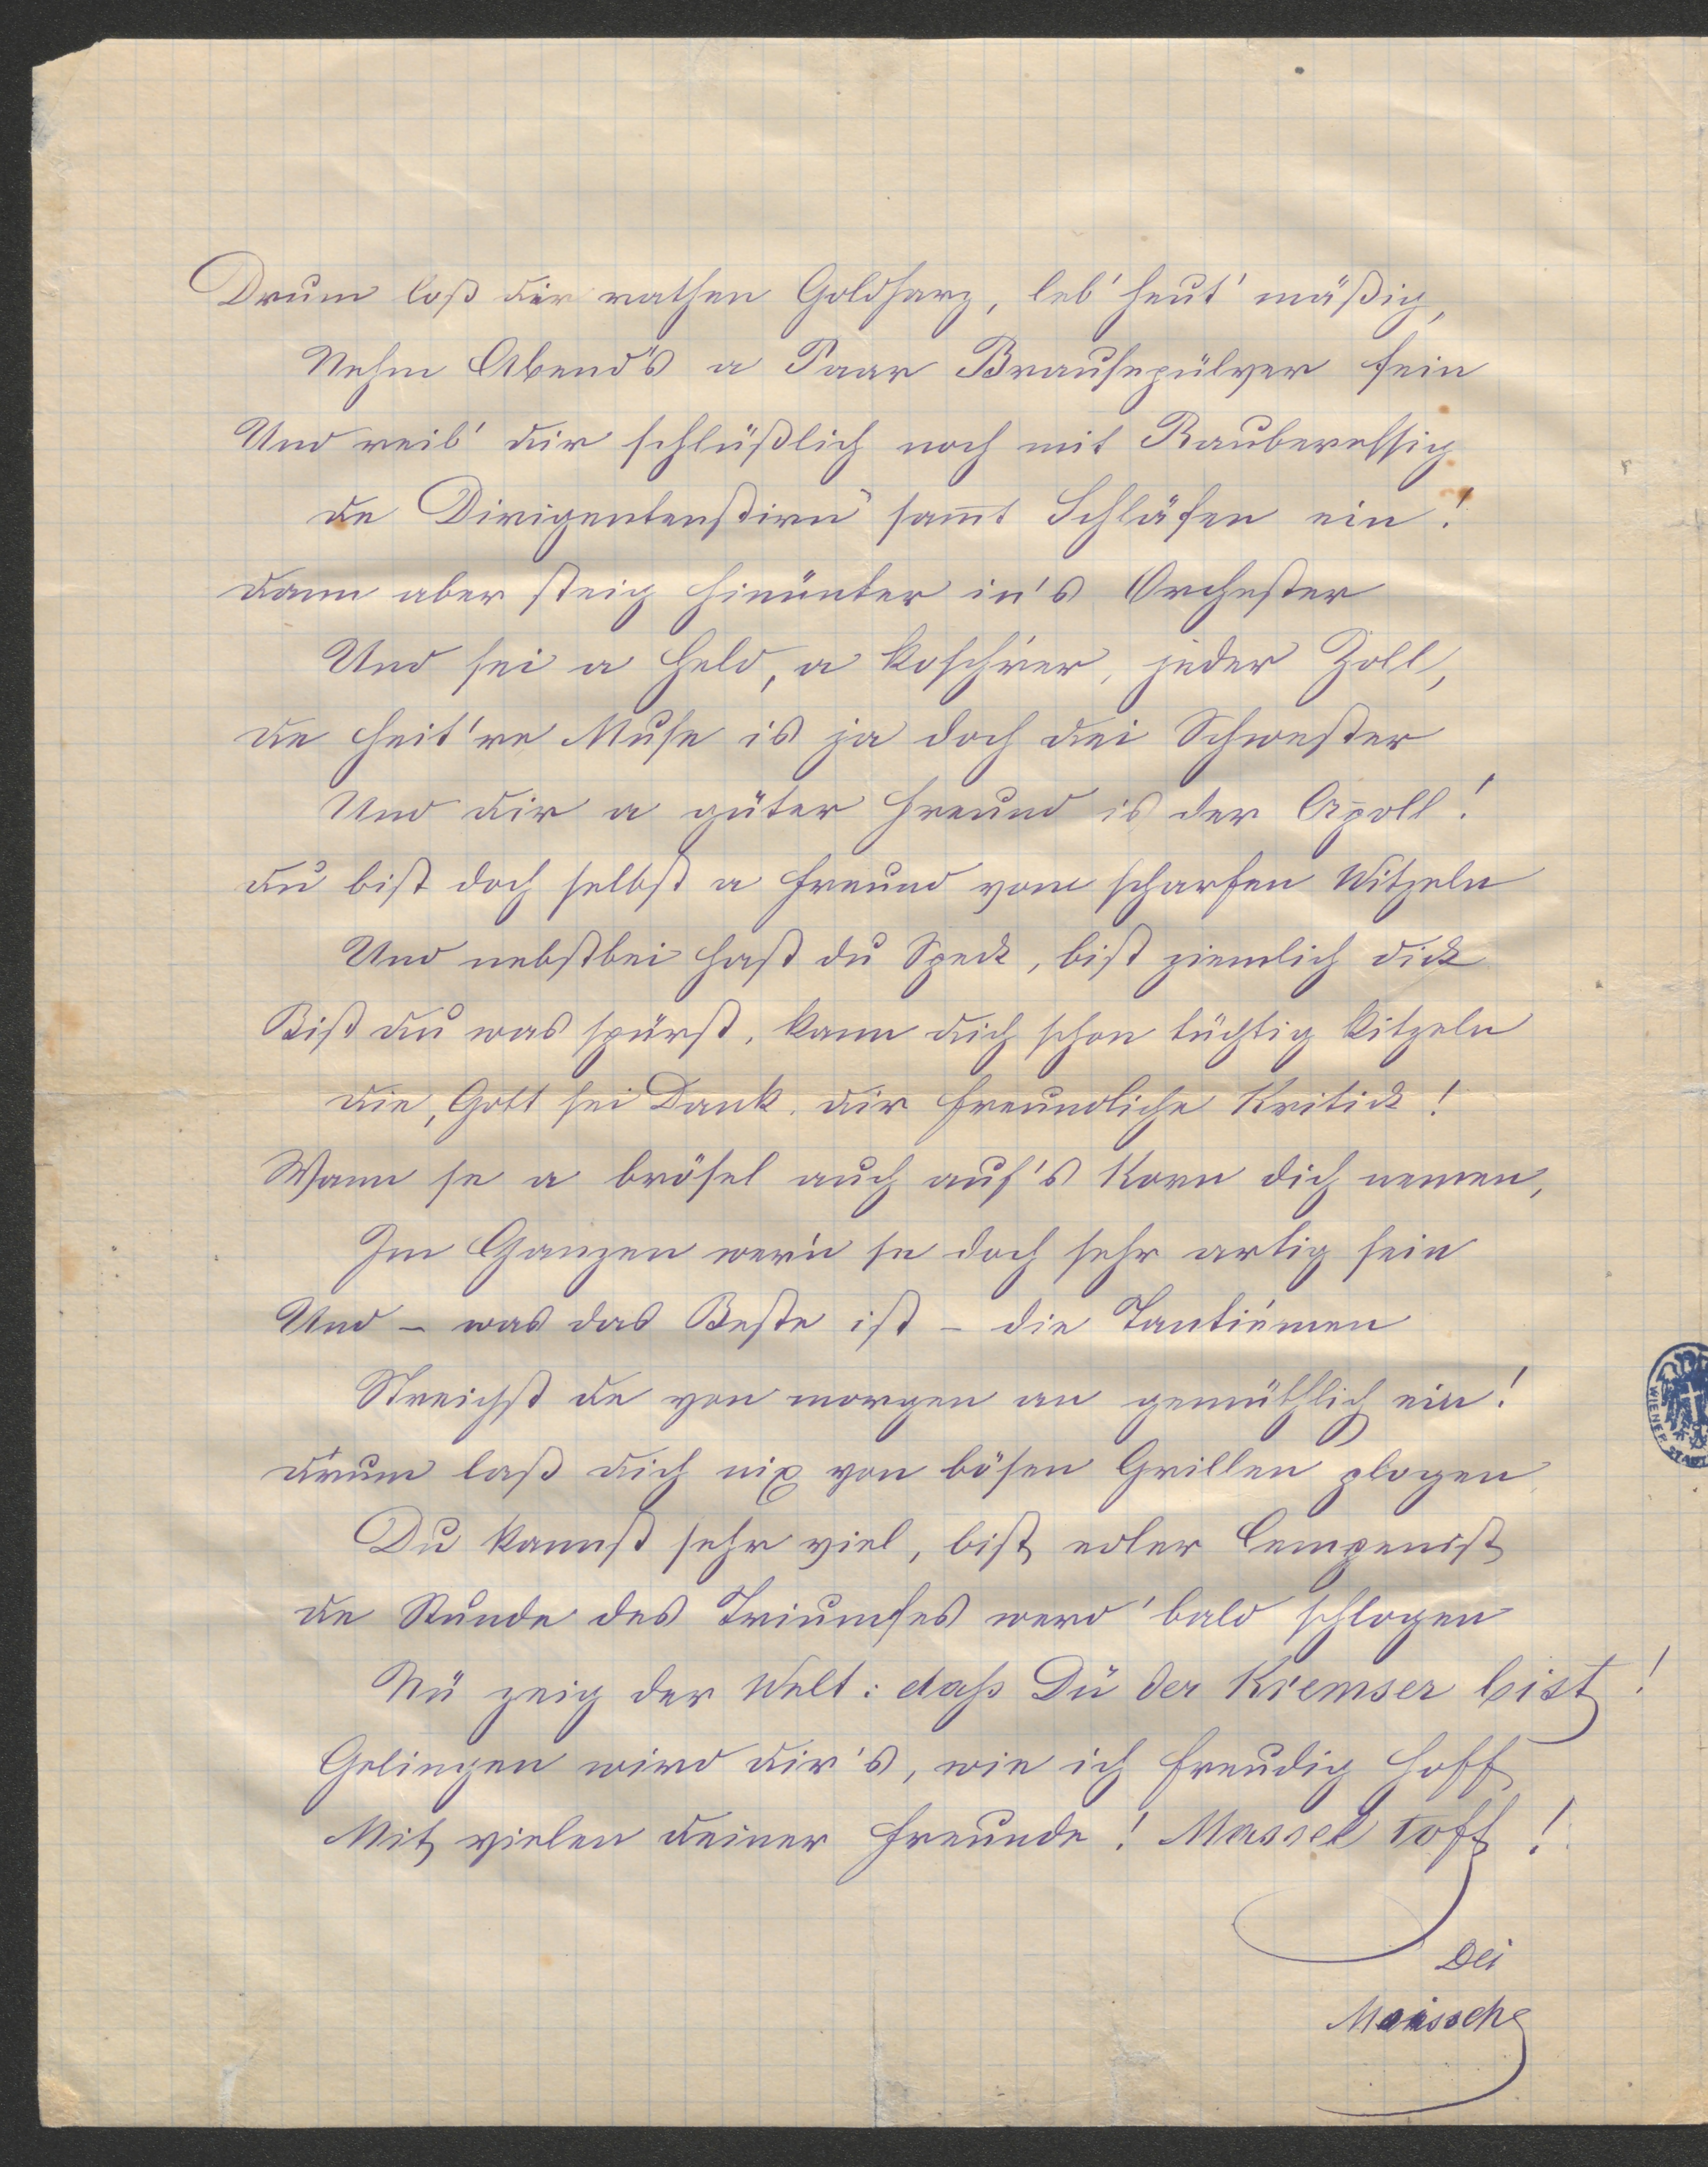 Drum loß dir rathen Goldharz, leb' heut' mäßig,
Nehm Abend's a Paar Brausepülver fein
Und reib' dir schlüßlich noch mit Rauberessig
de Dirigentenstirn' sam̄t Schläfen ein!
dann aber steig hinünter in's Orchester
Und sei a Held, a kosch'rer, jeder Zoll,
de heit're Muse is ja doch dei Schwester
Und dir a güter Freund is der Apoll!
dü bist doch selbst a Freund vom scharfen Witzeln
Und nebstbei hast du Speck, bist ziemlich dick
Bist du was spürst, kann dich schon tüchtig kitzeln
die, Gott sei Dank. dir freundliche Kritick!
Wann se a brösel auch auf's Korn dich nemen,
Im Ganzen wer'n se doch sehr artig sein
Und – was das Beste ist – die Tantiémen
Streichst de von morgen an gemüthlich ein!
d'rum laß dich nix von bösen Grillen plogen
Du kannst sehr viel, bist edler Componist
de Stunde des Triumfes werd' bald schlogen
Nü zeig der Welt: daß Dü der Kremser bist!
Gelingen wird dir's, wie ich freudig hoff
Mit vielen deiner Freunde! Massel toff!
Dei
Moissche
WIENER STADT